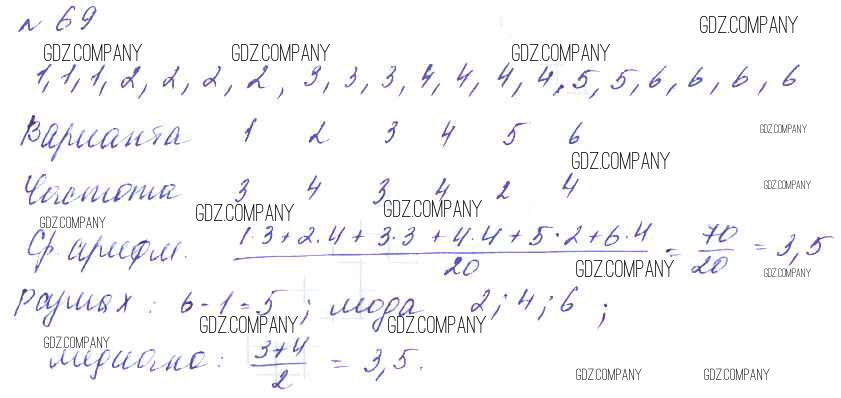 № 69
GDZ.COMPANY
GDZ.COMPANY GDZ.COMPANY GDZ.COMPANY
1, 1, 1, 2, 2, 2, 2, 3, 3, 3, 4, 4, 4, 4, 5, 5, 6, 6, 6, 6
Варианта 1 2 3 4 5 6
GDZ.COMPANY
GDZ.COMPANY
Частота 3 4 3 4 2 4
GDZ.COMPANY
GDZ.COMPANY GDZ.COMPANY
GDZ.COMPANY
Ср. арифм. (1·3+2·4+3·3+4·4+5·2+6·4)/20 = 70/20 = 3,5
GDZ.COMPANY GDZ.COMPANY
Размах: 6-1=5; мода 2; 4; 6;
GDZ.COMPANY GDZ.COMPANY
GDZ.COMPANY
медиана: (3+4)/2 = 3,5.
GDZ.COMPANY GDZ.COMPANY